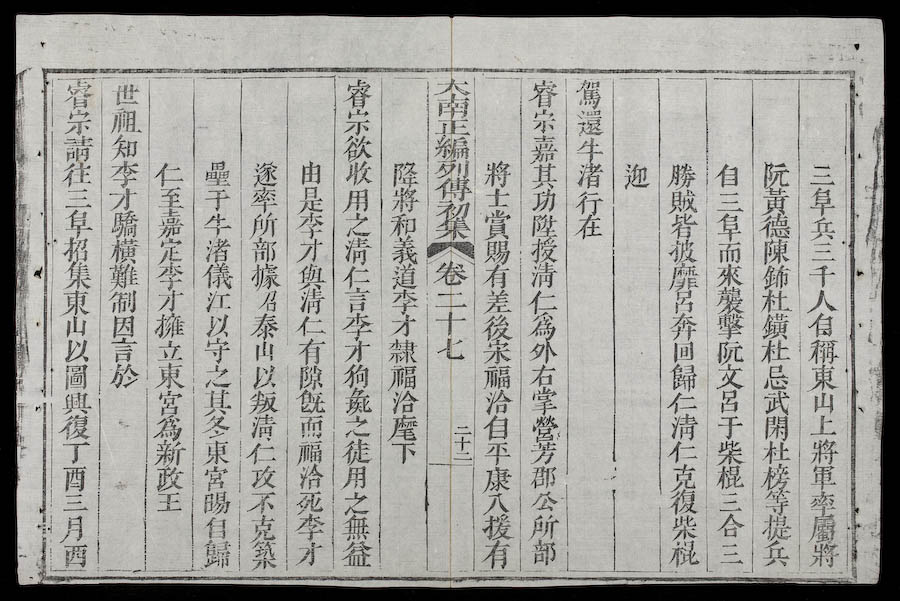 三阜兵三千人自稱東山上將軍率屬將
阮黃德陳鈽杜鐄杜忌武閑杜榜等提兵
自三阜而來襲擊阮文呂于柴棍三合三
勝賊皆披靡呂奔回歸仁淸仁克復柴棍
迎
駕還牛渚行在
睿宗嘉其功陞授淸仁爲外右掌營芳郡公所部
將士賞賜有差後宋福洽自平康入援有
大南正編列傳初集 卷二十七 二十二
降將和義道李才隸福洽麾下
睿宗欲收用之淸仁言李才狗彘之徒用之無益
由是李才與淸仁有隙旣而福洽死李才
遂率所部據沼泰山以叛淸仁攻不克築
壘于牛渚儀江以守之其冬東宮暘自歸
仁至嘉定李才擁立東宮爲新政王
世祖知李才驕橫難制因言於
睿宗請往三阜招集東山以圖興復丁酉三月西